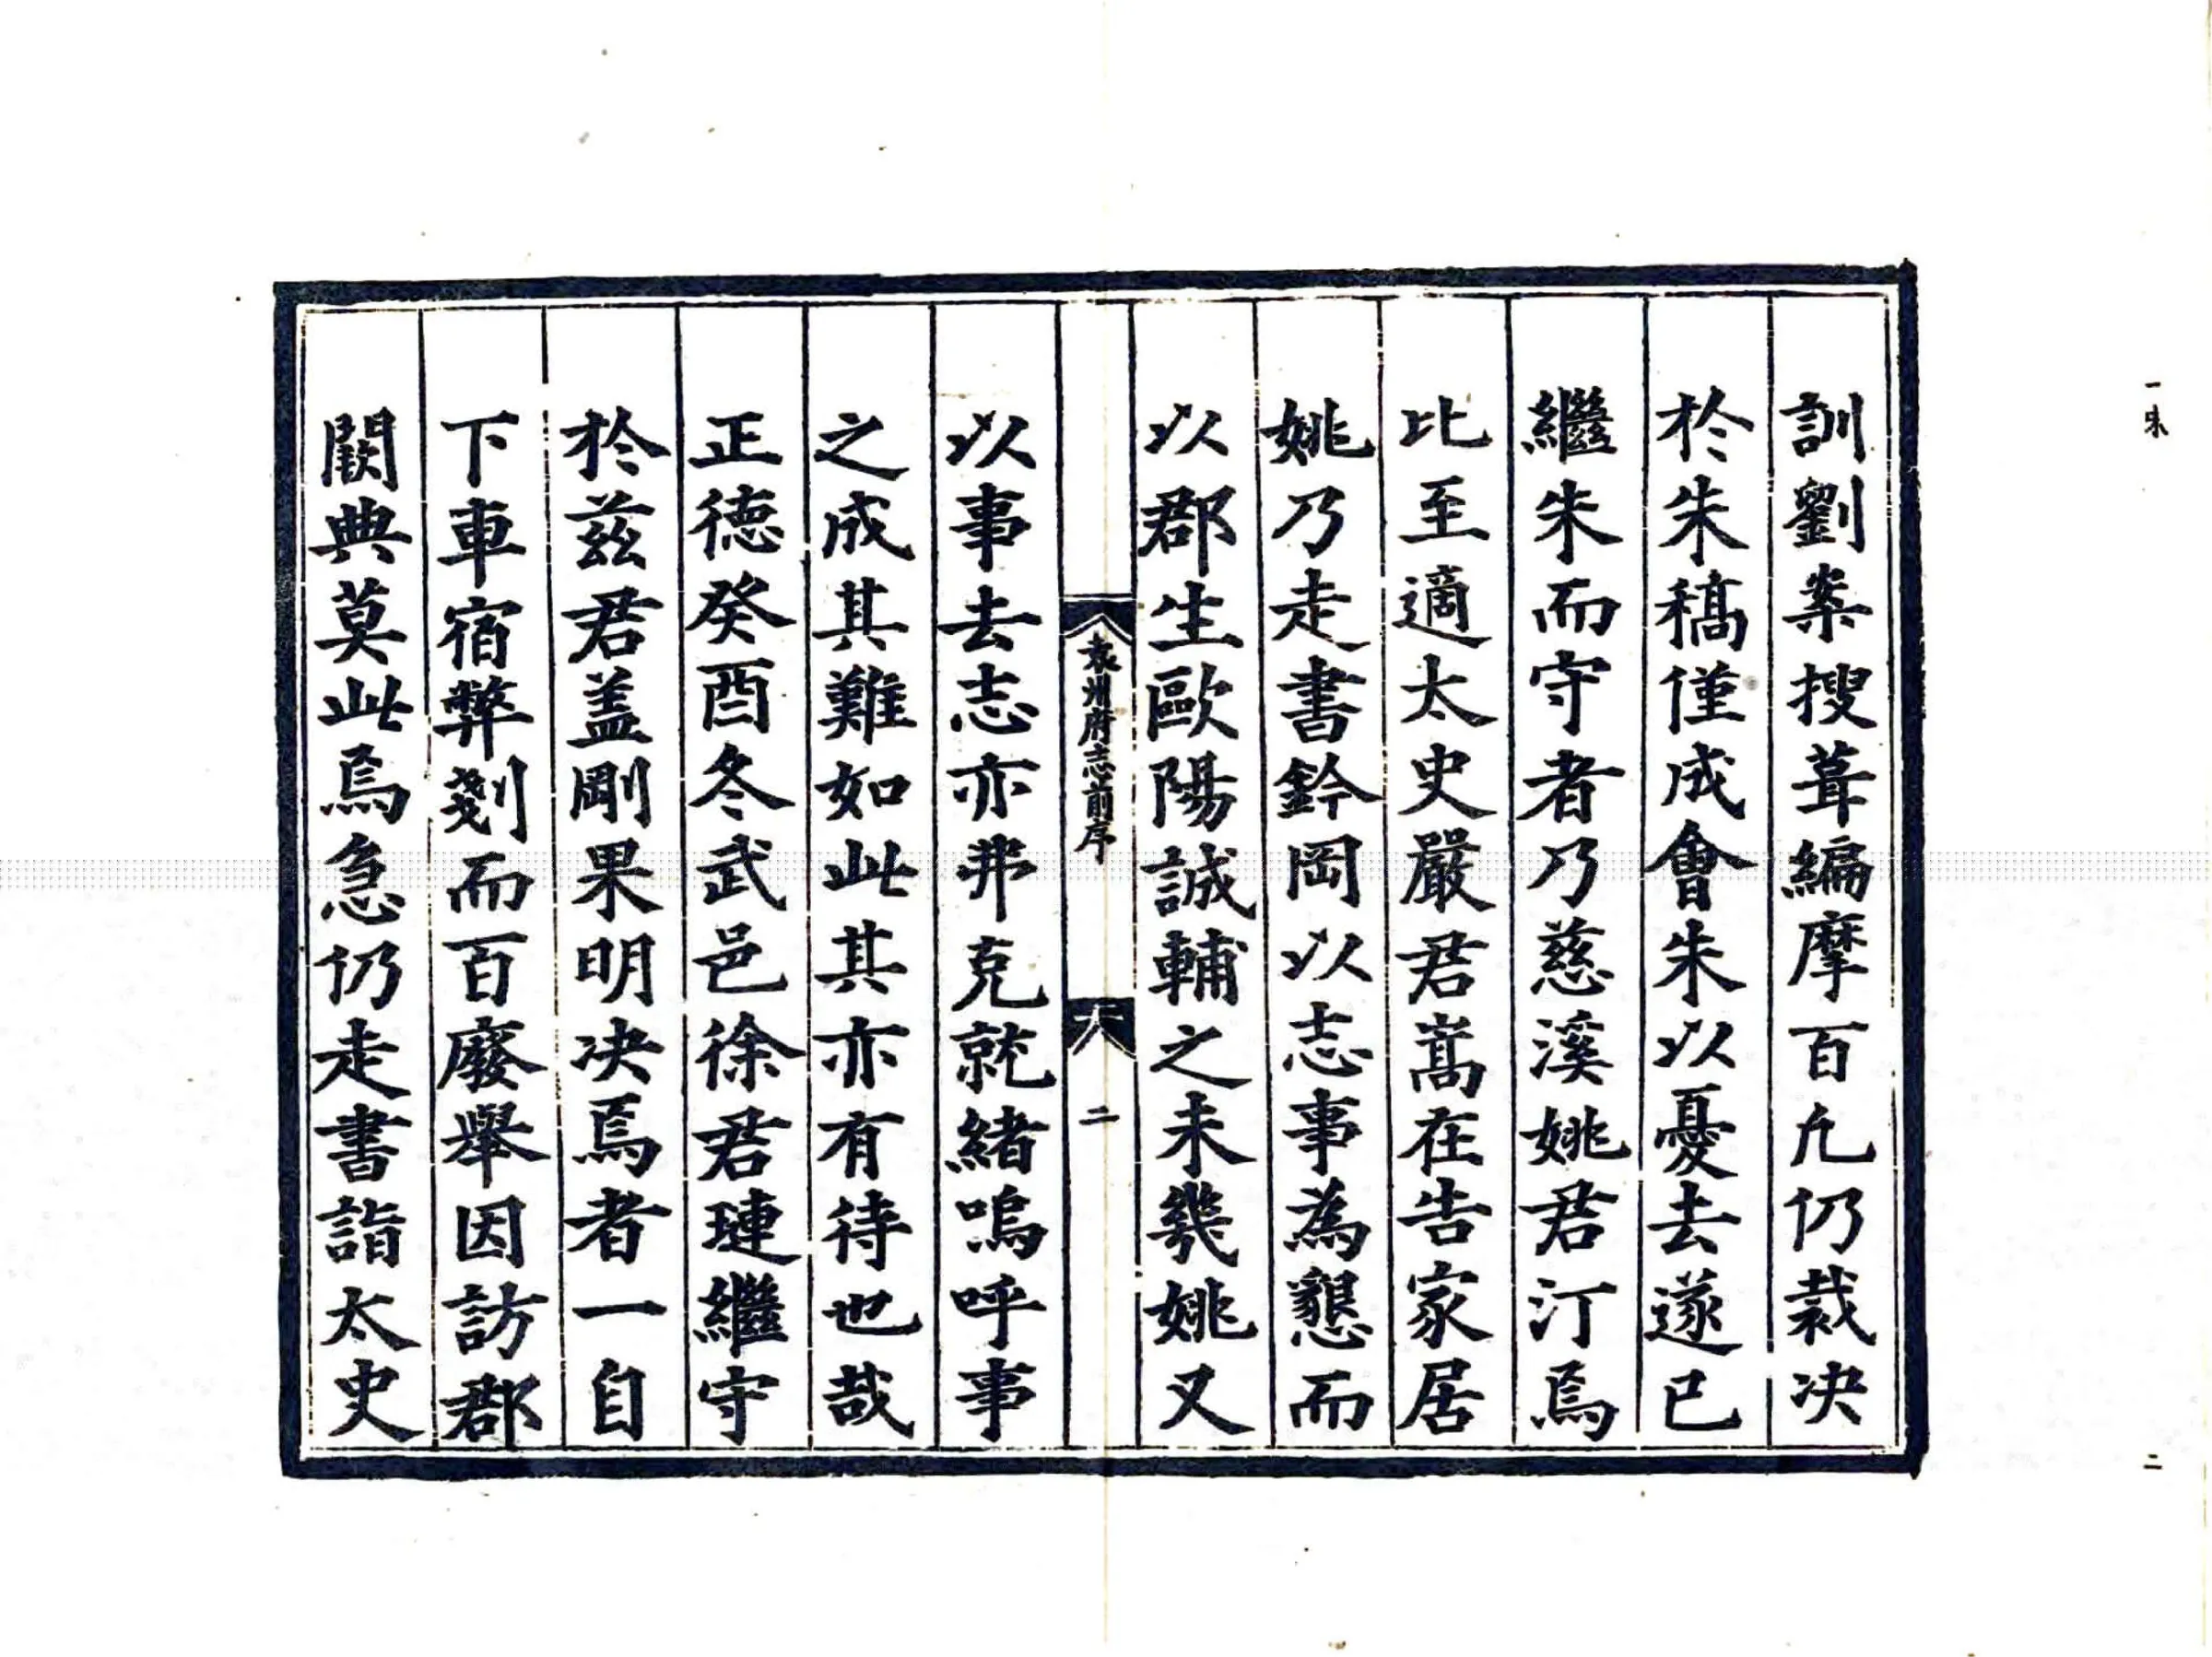 訓劉棻搜葺編摩百凢仍裁决
於朱稿僅成會朱以憂去遂已
繼朱而守者乃慈溪姚君汀焉
比至適太史嚴君嵩在告家居
姚乃走書鈐岡以志事為懇而
以郡生歐陽誠輔之未幾姚又
袁州府志前序
二
以事去志亦弗克就緒嗚呼事
之成其難如此其亦有待也哉
正德癸酉冬武邑徐君璉繼守
於兹君盖剛果明决焉者一自
下車宿弊剗而百廢舉因訪郡
闕典莫此焉急仍走書詣太史
二